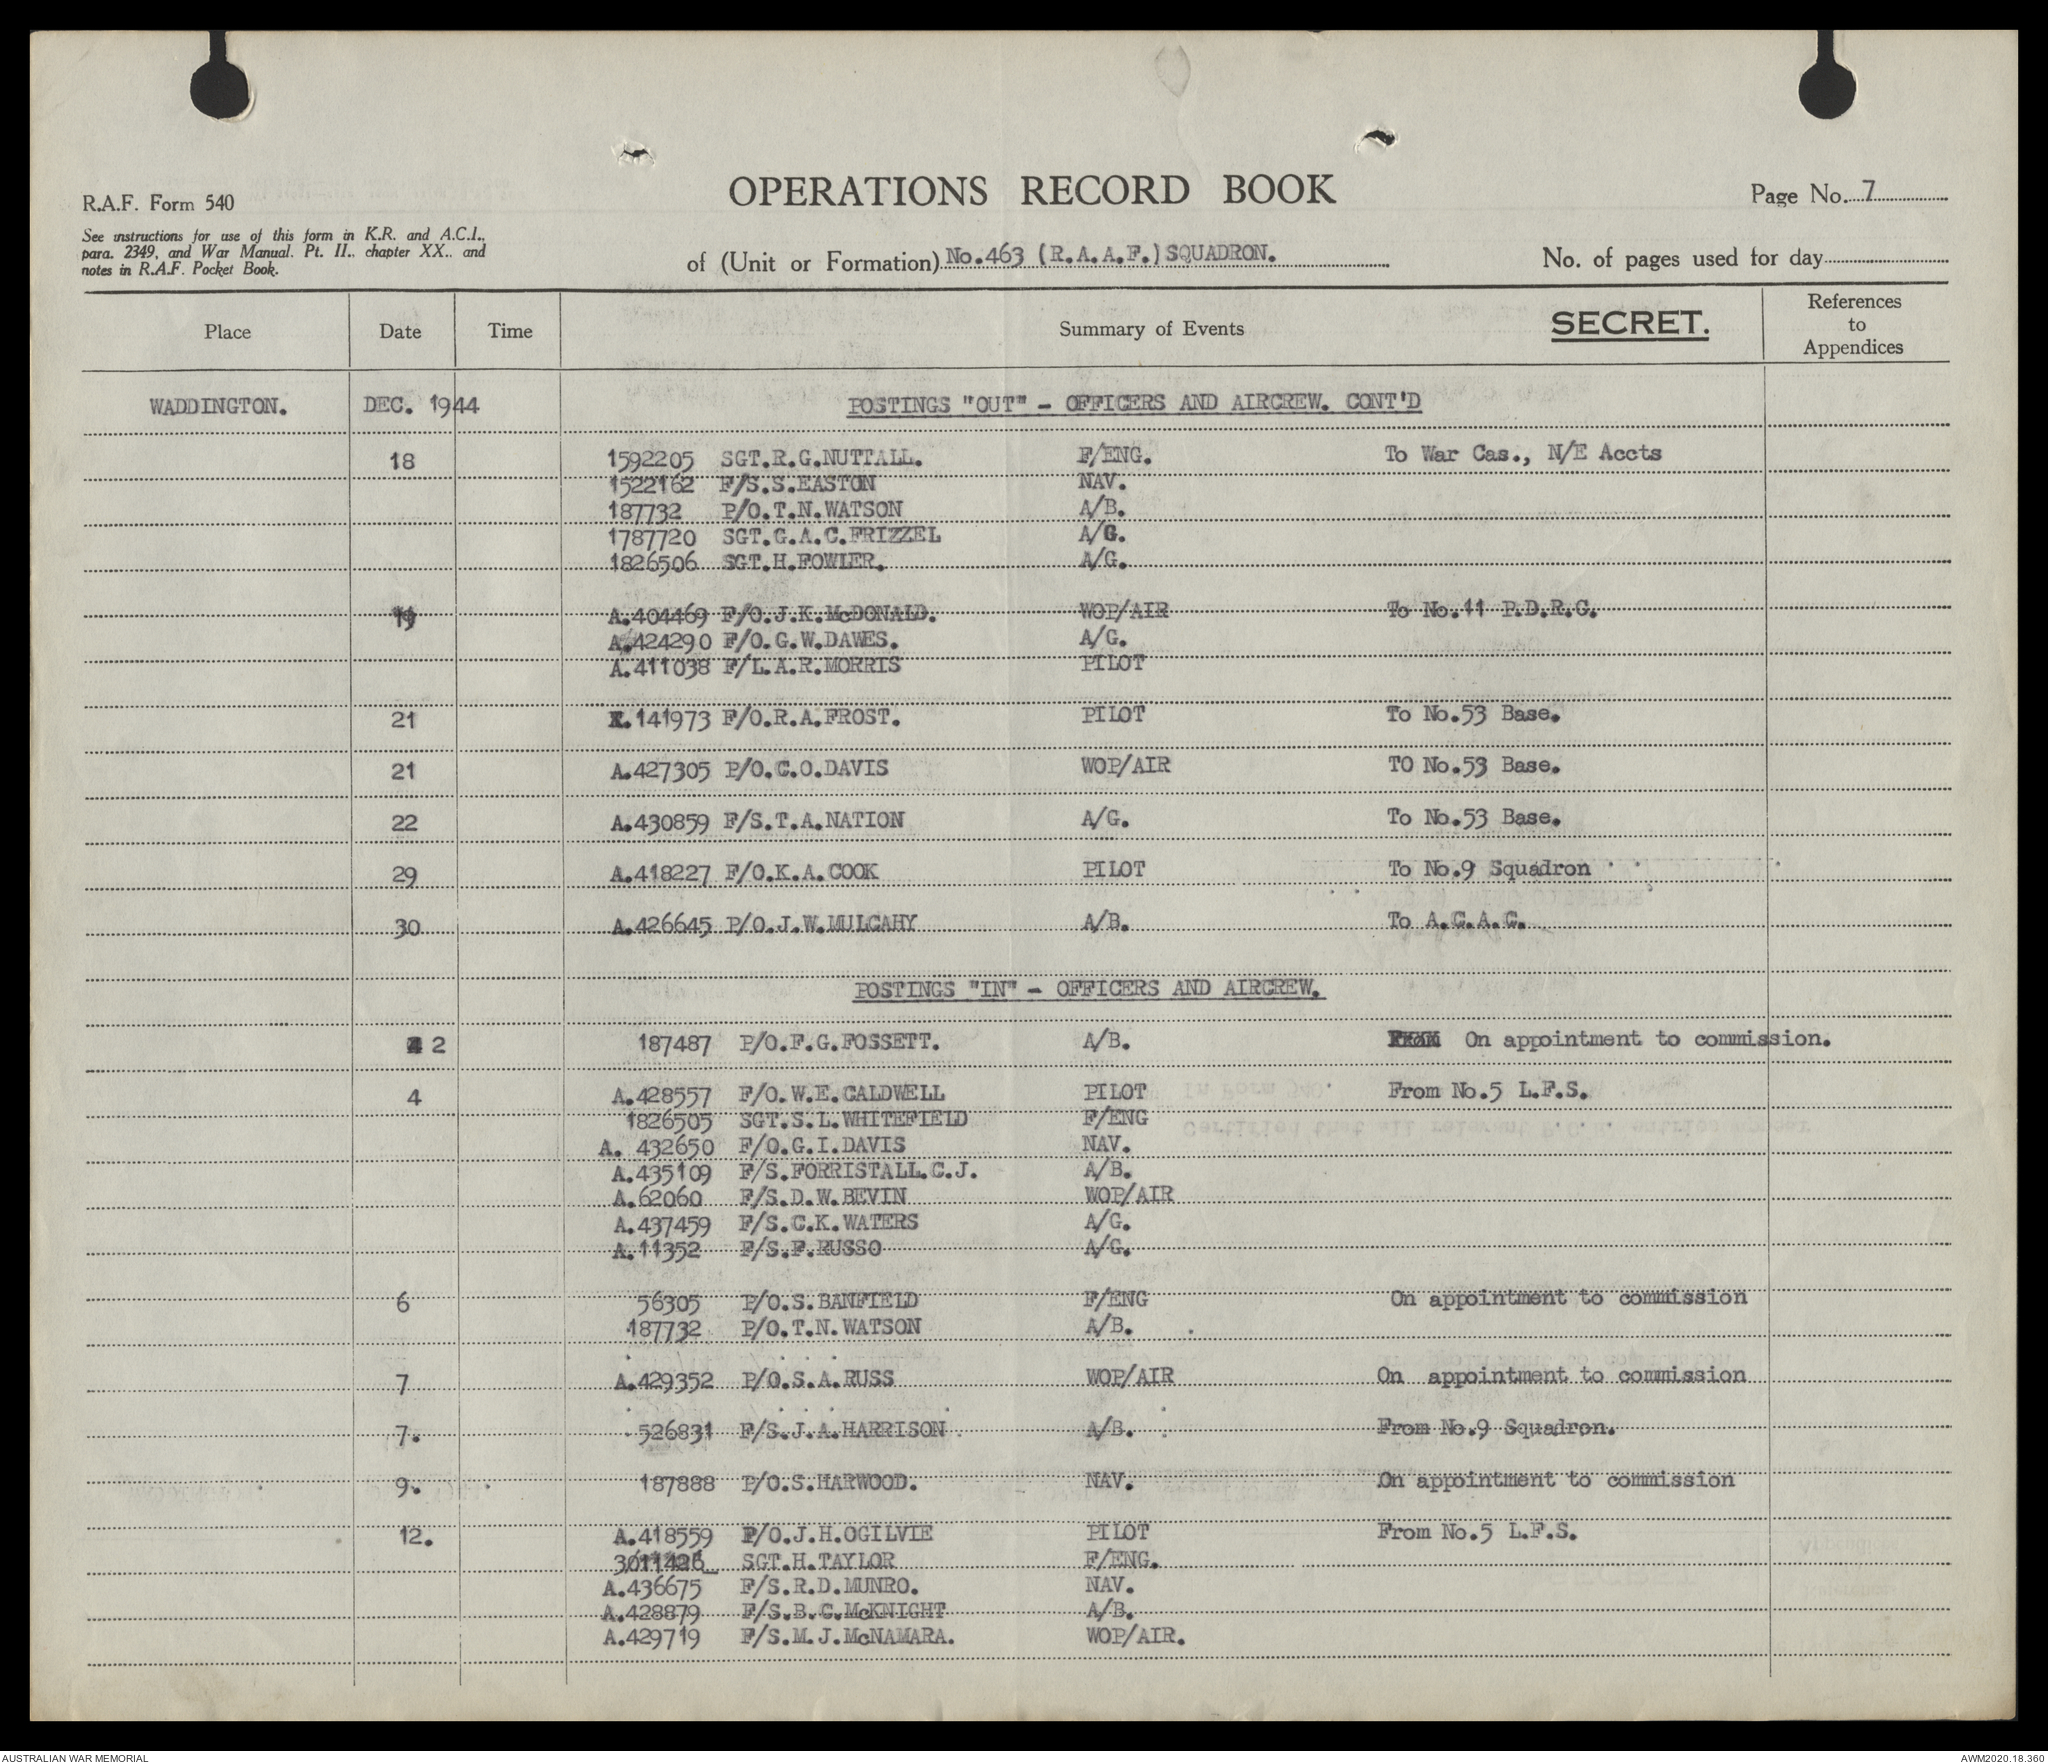 R.A.F. Form 540
See instructions for use of this form in K.R. and A.C.I.,
para. 2349, and War Manual. Pt. II., chapter XX., and
notes in R.A.F. Pocket Book.
OPERATIONS RECORD BOOK
of (Unit or Formation) No.463 (R.A.A.F.) SQUADRON.
Page No. 7
No. of pages used for day
Place Date Time Summary of Events SECRET. References to Appendices
WADDINGTON. DEC. 1944 POSTINGS "OUT" - OFFICERS AND AIRCREW. CONT'D
18 1592205 SGT.R.G.NUTTALL. F/ENG. To War Cas., N/E Accts
1522162 F/S.S.EASTON NAV.
187732 P/O.T.N.WATSON A/B.
1787720 SGT.G.A.C.FRIZZEL A/G.
1826506 SGT.H.FOWLER. A/G.
19 A.404469 F/O.J.K.McDONALD. WOP/AIR To No.11 P.D.R.C.
A.424290 F/O.G.W.DAWES. A/G.
A.411038 F/L.A.R.MORRIS PILOT
21 141973 F/O.R.A.FROST. PILOT To No.53 Base.
21 A.427305 P/O.C.O.DAVIS WOP/AIR TO No.53 Base.
22 A.430859 F/S.T.A.NATION A/G. To No.53 Base.
29 A.418227 F/O.K.A.COOK PILOT To No.9 Squadron
30 A.426645 P/O.J.W.MULCAHY A/B. To A.C.A.C.
POSTINGS "IN" - OFFICERS AND AIRCREW.
2 187487 P/O.F.G.FOSSETT. A/B. On appointment to commission.
4 A.428557 F/O.W.E.CALDWELL PILOT From No.5 L.F.S.
1826505 SGT.S.L.WHITEFIELD F/ENG
A. 432650 F/O.G.I.DAVIS NAV.
A.435109 F/S.FORRISTALL.C.J. A/B.
A.62060 F/S.D.W.BEVIN WOP/AIR
A.437459 F/S.C.K.WATERS A/G.
A.11352 F/S.F.RUSSO A/G.
6 56305 P/O.S.BANFIELD F/ENG On appointment to commission
187732 P/O.T.N.WATSON A/B.
7 A.429352 P/O.S.A.RUSS WOP/AIR On appointment to commission
7. 526831 F/S.J.A.HARRISON A/B. From No.9 Squadron.
9. 187888 P/O.S.HARWOOD. NAV. On appointment to commission
12. A.418559 P/O.J.H.OGILVIE PILOT From No.5 L.F.S.
3011426 SGT.H.TAYLOR F/ENG.
A.436675 F/S.R.D.MUNRO. NAV.
A.428879 F/S.B.C.McKNIGHT A/B.
A.429719 F/S.M.J.McNAMARA. WOP/AIR.
AUSTRALIAN WAR MEMORIAL
AWM2020.18.360